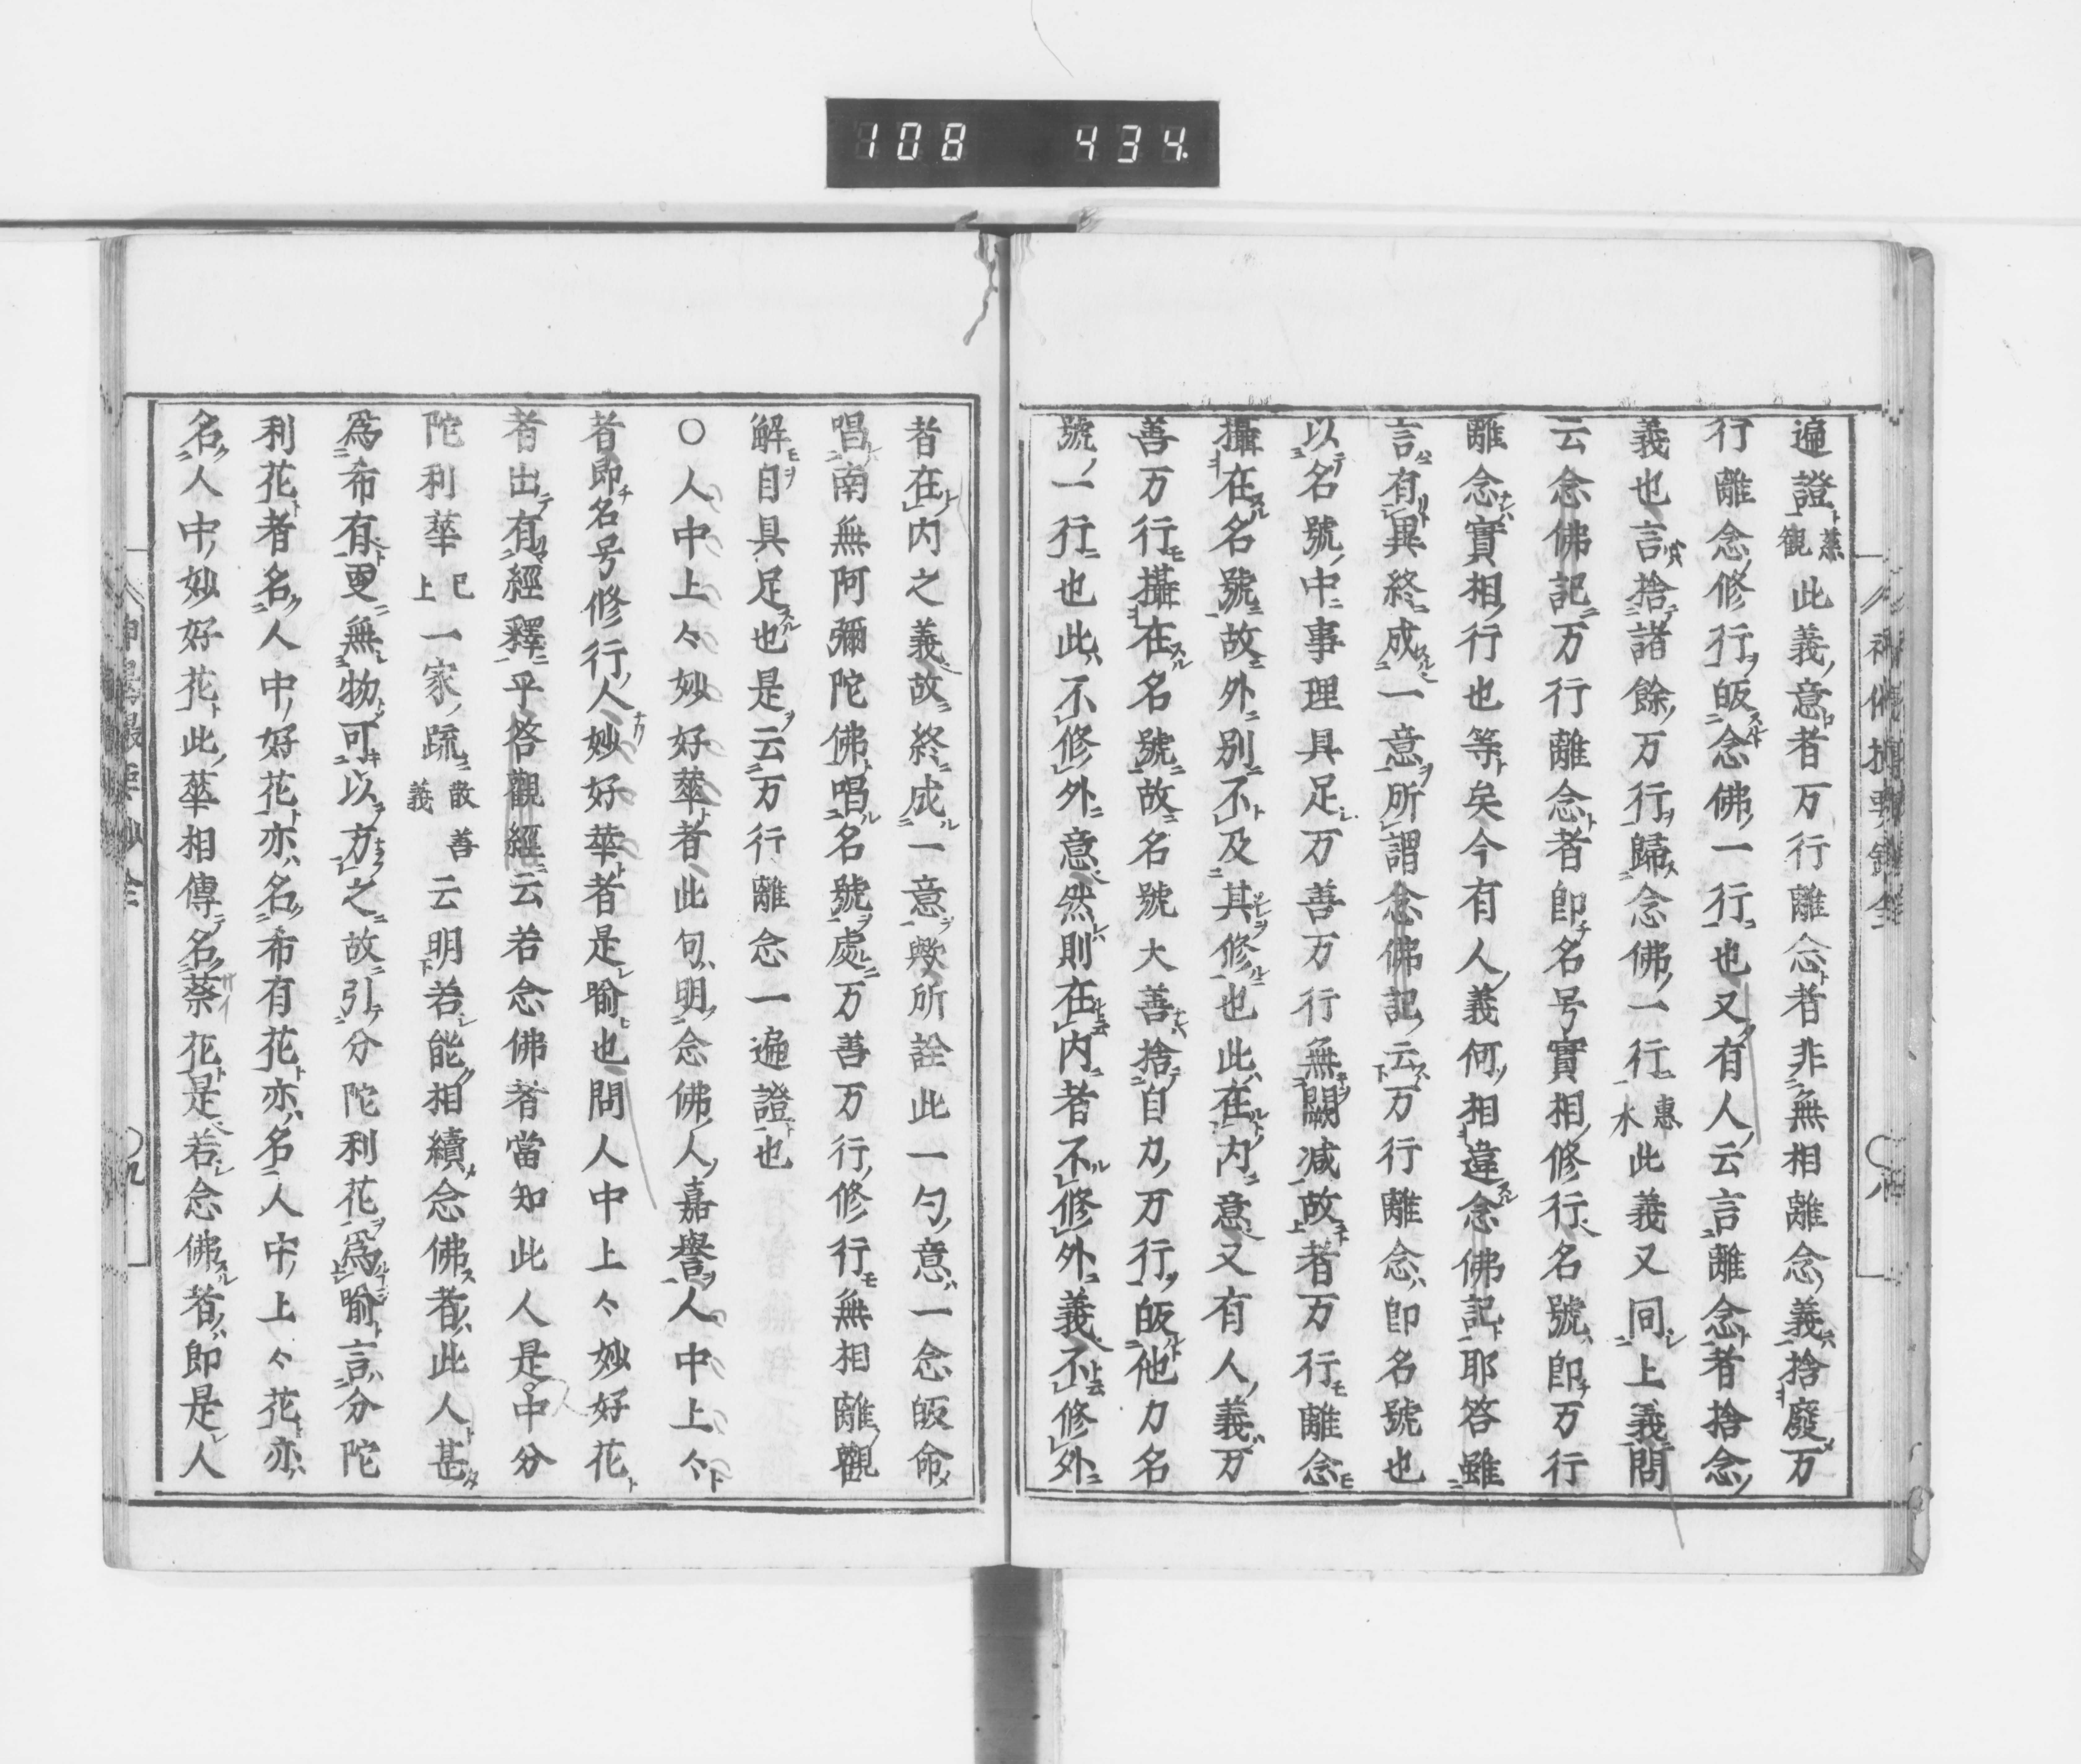 108 434
遍證薰觀此義意者万行離念者非無相離念義捨廢万
行離念修行皈念佛一行也又有人云言離念者捨念
義也言捨諸餘万行歸念佛一行惠水此義又同上義問
云念佛記万行離念者即名号實相修行名號即万行
離念實相行也等矣今有人義何相違念佛記耶答雖
言有異終成一意所謂念佛記云万行離念即名號也
以名號中事理具足万善万行無闕減故者万行離念
攝在名號故外別不及其修也此在内意又有人義万
善万行攝在名號故名號大善捨自力万行皈他力名
號一行也此不修外意然則在内者不修外義不修外
者在内之義故終成一意歟所詮此一句意一念皈命
唱南無阿彌陀佛唱名號處万善万行修行無相離觀
解自具足也是云万行離念一遍證也
○人中上々妙好華者此句明念佛人嘉譽人中上々
者即名号修行人妙好華者是喻也問人中上々妙好花
者出有經釋乎答觀經云若念佛者當知此人是中分
陀利華已上一家疏散善義云明若能相續念佛者此人甚
爲希有更無物可以方之故引分陀利花爲喻言分陀
利花者名人中好花亦名希有花亦名人中上々花亦
名人中妙好花此華相傳名蔡花是若念佛者即是人